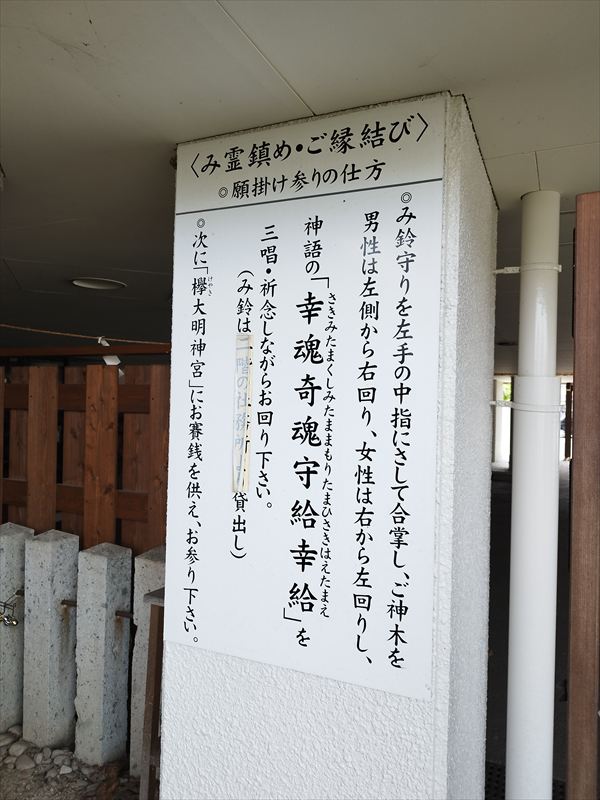 〈み霊鎮め・ご縁結び〉
◎願掛け参りの仕方
◎み鈴守りを左手の中指にさして合掌し、ご神木を
男性は左側から右回り、女性は右から左回りし、
神語の「幸魂奇魂守給幸給」を
さきみたまくしみたままもりたまひさきはえたまえ
三唱・祈念しながらお回り下さい。
(み鈴は二階の社務所 貸出し)
◎次に「欅大明神宮」にお賽銭を供え、お参り下さい。
けやき